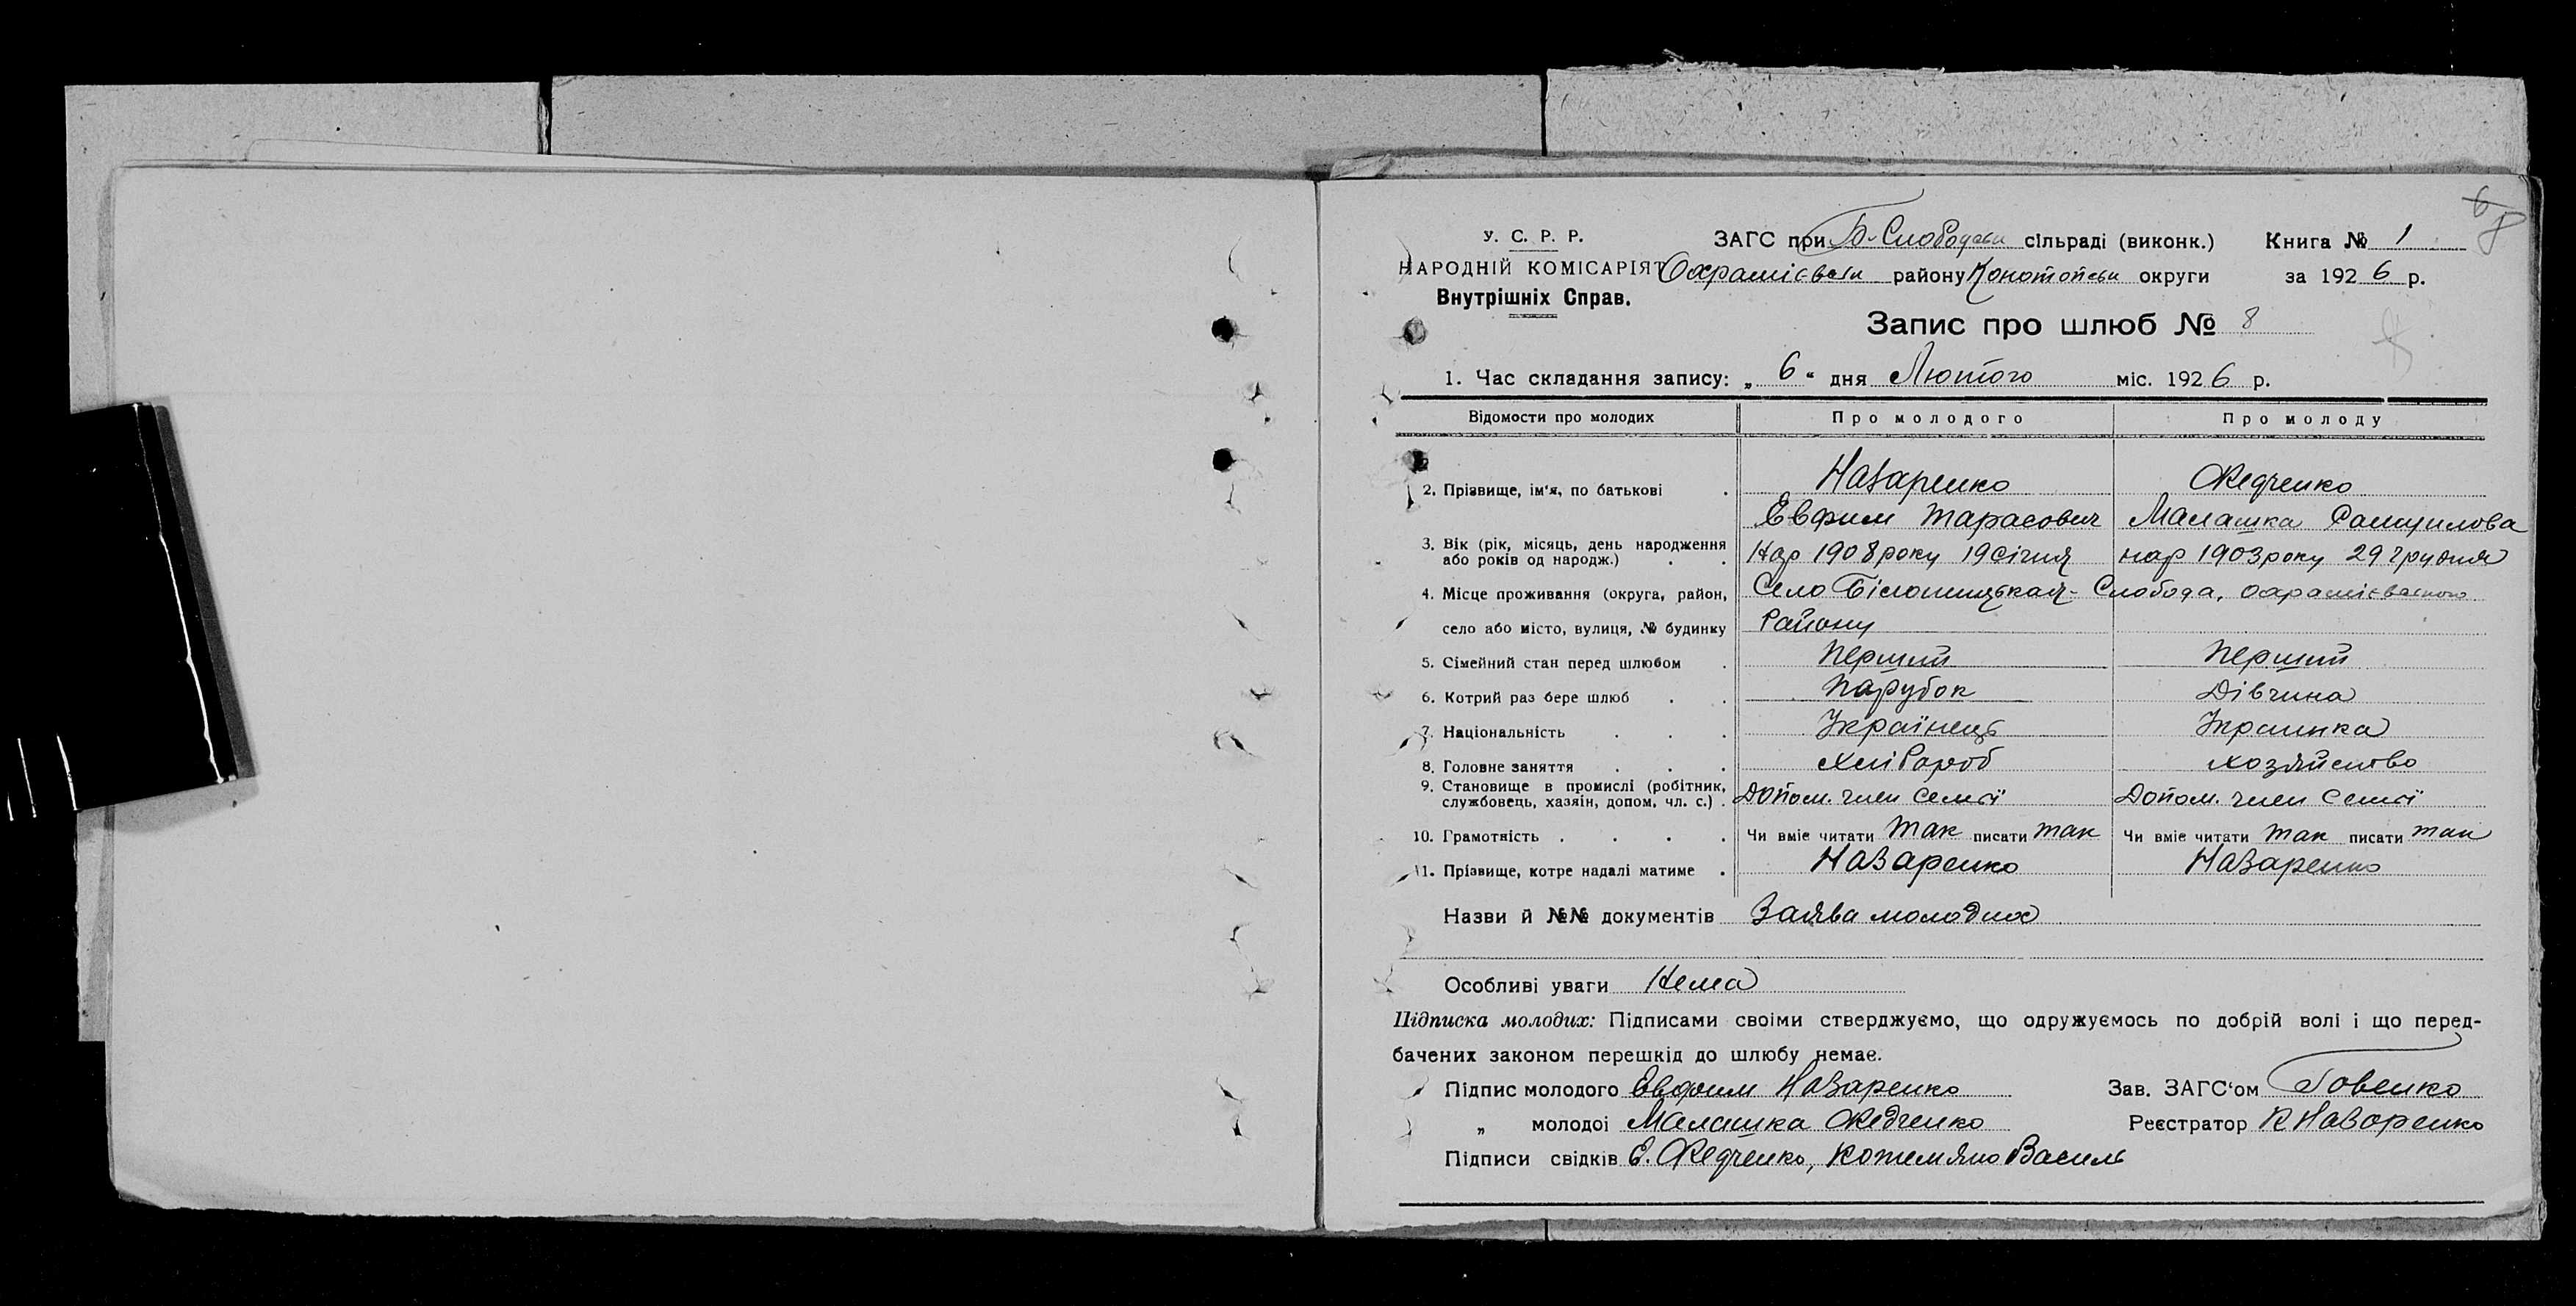 У. С. Р. Р. ЗАГС при Б-Слободськ сільраді (виконк.) Книга № 1
НАРОДНІЙ КОМІСАРІЯТ Охрамієвськ району Конотопськ округи за 1926 р.
Внутрішніх Справ.
Запис про шлюб № 8
1. Час складання запису: „ 6 “ дня Лютого міс. 1926 р.
Відомости про молодих Про молодого Про молоду
2. Прізвище, ім'я, по батькові . Назаренко Федченко
Евфим Тарасович Малашка Самуилова
3. Вік (рік, місяць, день народження
або років од народж.) . . Нар 1908 року 19 січня нар 1903 року 29 грудня
4. Місце проживання (округа, район, Село Білопишцькая-Слобода, Охрамієвського
село або місто, вулиця, № будинку Району
5. Сімейний стан перед шлюбом . Перший Перший
6. Котрий раз бере шлюб . . Парубок Дівчина
7. Національність . . . Українець Украинка
8. Головне заняття . . . Хлібороб хозяйство
9. Становище в промислі (робітник,
службовець, хазяін, допом, чл. с.) . Допом. член семьї Допом. член семьї
10. Грамотність . . . . Чи вміє читати так писати так Чи вміє читати так писати так
11. Прізвище, котре надалі матиме . Назаренко Назаренко
Назви й №№ документів Заява молодих
Особливі уваги Нема
Підписка молодих: Підписами своіми стверджуємо, що одружуємось по добрій волі і що перед-
бачених законом перешкід до шлюбу немає.
Підпис молодого Евфим Назаренко Зав. ЗАГС‘ом Говенко
„ молодоі Малашка Федченко Реєстратор К Назаренко
Підписи свідків Е. Федченко, Кожемяко Василь